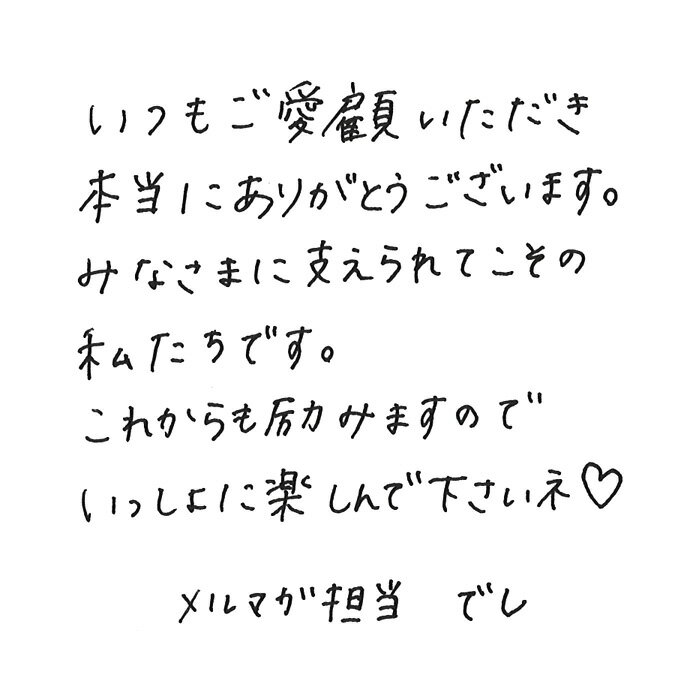 いつもご愛顧いただき
本当にありがとうございます。
みなさまに支えられてこその
私たちです。
これからも励みますので
いっしょに楽しんで下さいネ♡
メルマガ担当 でし